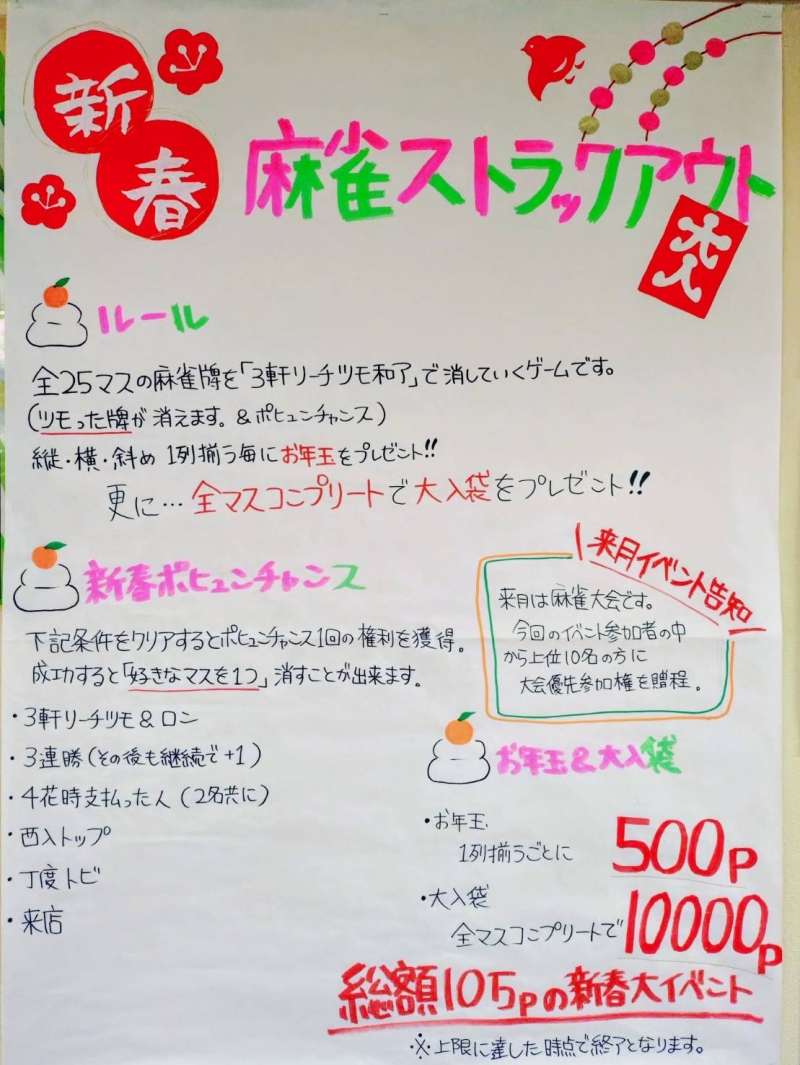 新春
麻雀ストラックアウト
大入
ルール
全25マスの麻雀牌を「3軒リーチツモ和了」で消していくゲームです。
(ツモった牌が消えます。&ポヒュンチャンス)
縦・横・斜め 1列揃う毎にお年玉をプレゼント!!
更に…全マスコンプリートで大入袋をプレゼント!!
新春ポヒュンチャンス
下記条件をクリアするとポヒュンチャンス1回の権利を獲得。
成功すると「好きなマスを1つ」消すことが出来ます。
・3軒リーチツモ&ロン
・3連勝(その後も継続で+1)
・4花時支払った人(2名共に)
・西入トップ
・丁度トビ
・来店
来月イベント告知
来月は麻雀大会です。
今回のイベント参加者の中
から上位10名の方に
大会優先参加権を贈程。
お年玉&大入袋
・お年玉
1列揃うごとに 500P
・大入袋
全マスコンプリートで 10000P
総額105Pの新春大イベント
※上限に達した時点で終了となります。